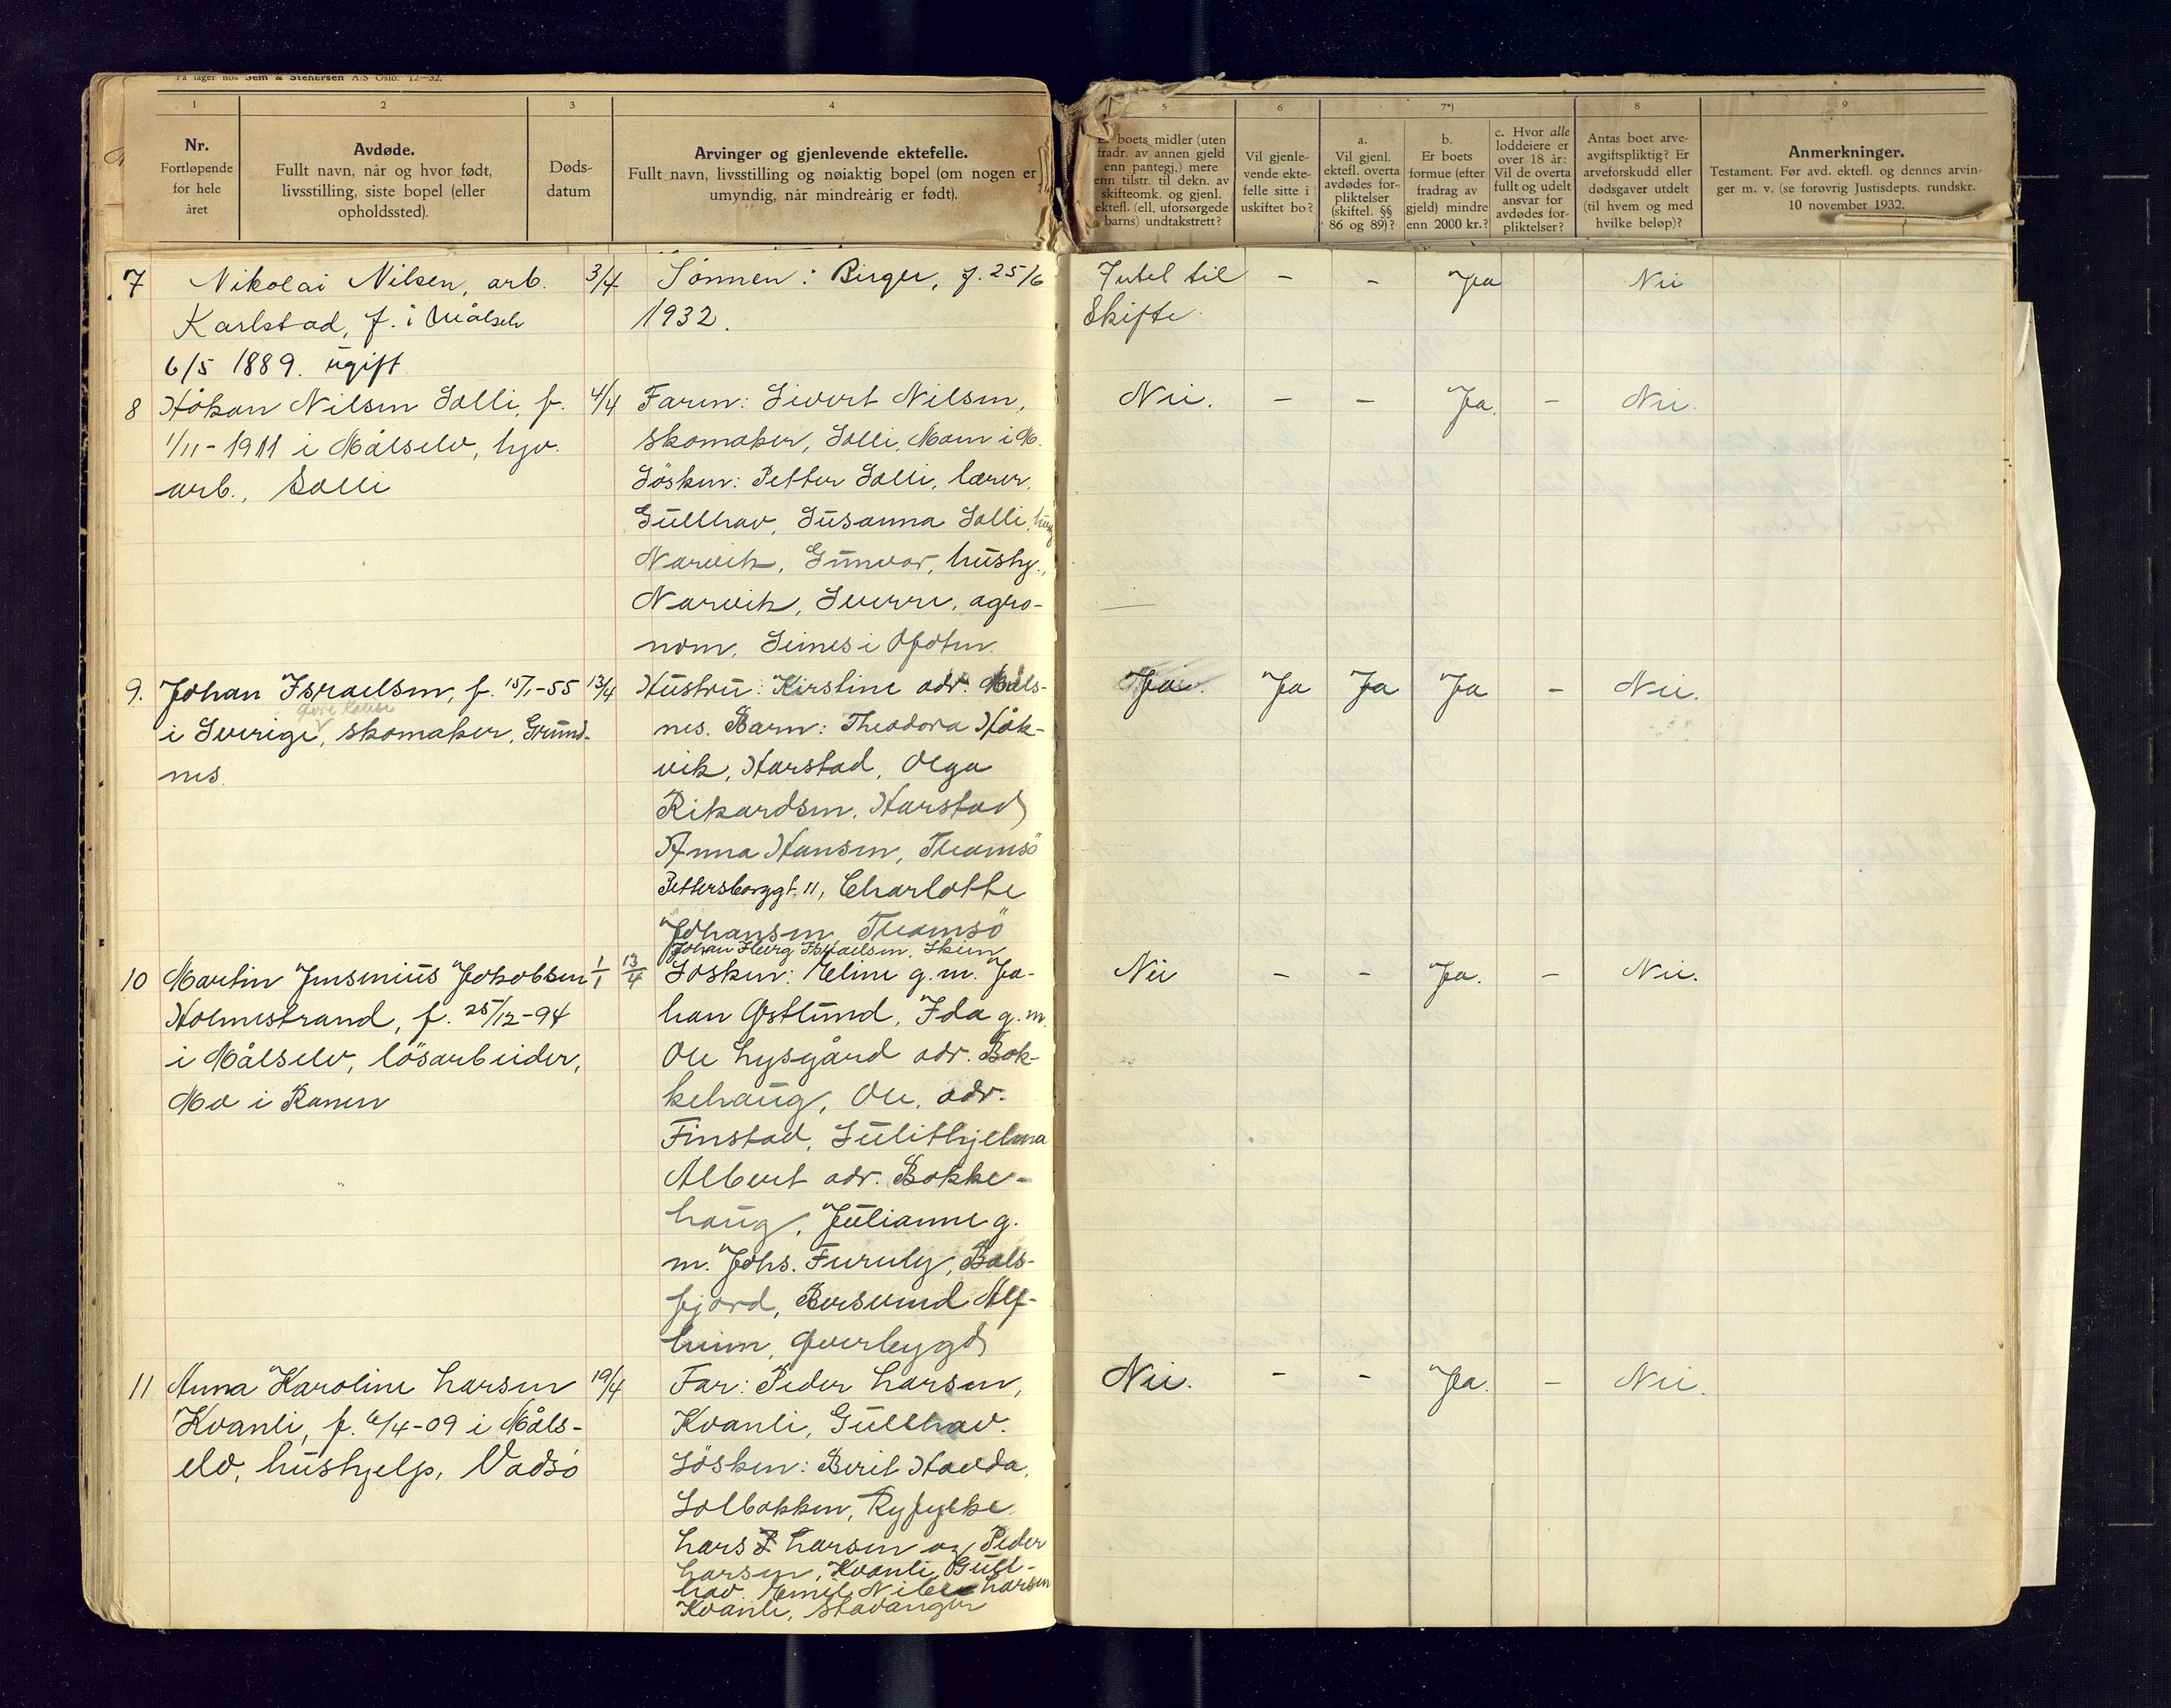 På lager hos Sem & Stenersen A/S Oslo. 12—32.
1
2
3
4
5
6
7*)
8
9
Nr.
Fortløpende
for hele
året
Avdøde.
Fullt navn, når og hvor født,
livsstilling, siste bopel (eller
opholdssted).
Døds-
datum
Arvinger og gjenlevende ektefelle.
Fullt navn, livsstilling og nøiaktig bopel (om nogen er
umyndig, når mindreårig er født).
boets midler (uten
fradr. av annen gjeld
enn pantegj.) mere
enn tilstr. til dekn. av
skifteomk. og gjenl.
ektefl. (ell. uforsørgede
barns) undtakstrett?
Vil gjenle-
vende ekte-
felle sitte i
uskiftet bo?
a.
Vil gjenl.
ektefl. overta
avdødes for-
pliktelser
(skiftel. §§
86 og 89)?
b.
Er boets
formue (efter
fradrag av
gjeld) mindre
enn 2000 kr.?
c. Hvor alle
loddeiere er
over 18 år:
Vil de overta
fullt og udelt
ansvar for
avdødes for-
pliktelser?
Antas boet arve-
avgiftspliktig? Er
arveforskudd eller
dødsgaver utdelt
(til hvem og med
hvilke beløp)?
Anmerkninger.
Testament. Før avd. ektefl. og dennes arvin-
ger m. v. (se forøvrig Justisdepts. rundskr.
10 november 1932.
7 Nikolai Nilsen, arb.
Karlstad, f. i Målselv
6/5 1889. ugift
3/4
Sønnen: Birger, f. 25/6
1932.
Intet til
Skifte.
- - Ja Nei
8 Håkon Nilsen Solli, f.
1/11-1911 i Målselv, hjv.
arb., Solli
4/4
Faren: Sivert Nilsen,
skomaker, Solli, Moen i M.
Søsken: Petter Solli, lærer,
Gullhav, Susanna Solli,
Narvik, Gunvor, hushj.,
Narvik, Sverre, agro-
nom, Seines i Ofoten.
Nei. - - Ja. - Nei.
9. Johan Israelsen, f. 15/1-55
i Sverige, skomaker, Grund-
nes.
13/4
Hustru: Kirstine adr. Måls-
nes. Barn: Theodora Håk-
vik, Harstad, Olga
Rikardsen, Harstad
Anna Hansen, Tromsö
Pettersborggt. 11, Charlotte
Johansen, Tromsö
Johan Herg Israelsen, Skien
Ja. Ja Ja Ja - Nei.
10 Martin Jensenius Jakobsen
Holmestrand, f. 25/12-94
i Målselv, løsarbeider,
Mo i Ranen
1/1 13/4
Søsken: Eline g. m. Jo-
han Østlund, Ida g. m.
Ole Lysgård adr. Bak-
kehaug, Ole, adr.
Finstad, Sulithjelma
Albert adr. Bakke-
haug, Julianne g.
m. Johs. Furuly, Bals-
fjord, Bersvend Alf-
heim, Øverbygd
Nei - - Ja. - Nei.
11 Anna Karoline Larsen
Kvanli, f. 6/4-09 i Måls-
elv, hushjelp, Vadsø
19/4
Far: Peder Larsen,
Kvanli, Gullhav.
Søsken: Berit Hadda,
Solbakken, Ryfylke
Lars Larsen og Peder
Larsen, Kvanli, Gull-
hav Emil Larsen
Kvanli, Stavanger
Nei. - - Ja. - Nei.